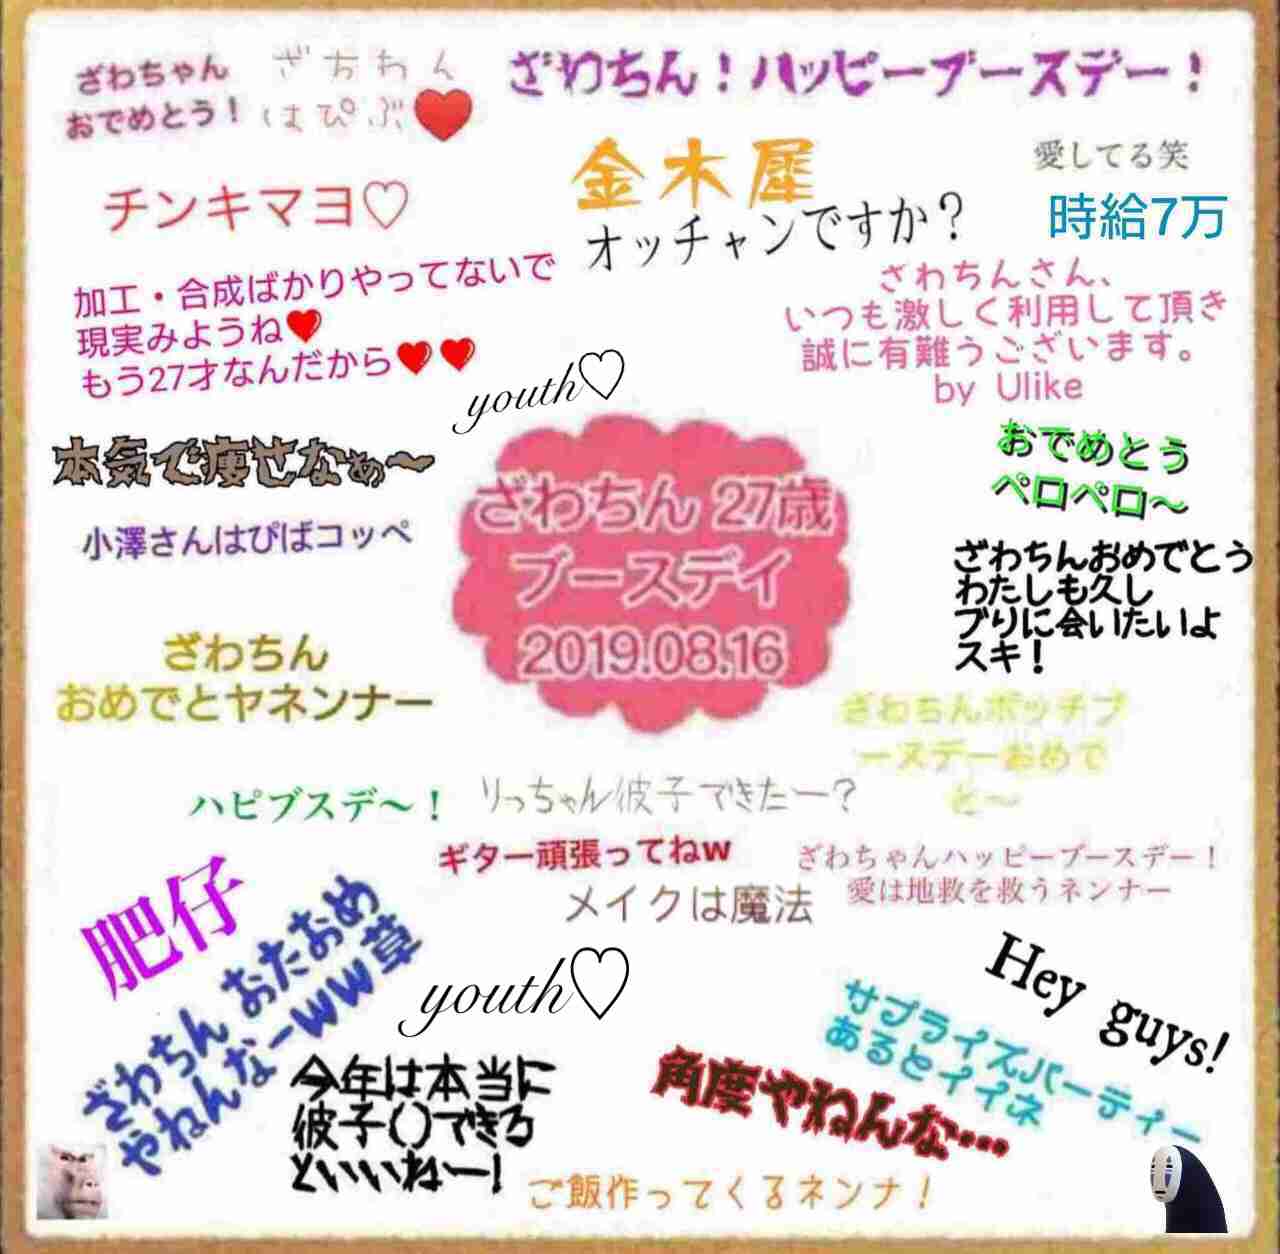 ざわちゃん
おでめとう！
ざちわん
はぴぶ❤
ざわちん！ハッピーブースデー！
チンキマヨ♡
金木犀
オッチャンですか？
愛してる笑
時給7万
加工・合成ばかりやってないで
現実みようね❤
もう27才なんだから❤❤
ざわちんさん、
いつも激しく利用して頂き
誠に有難うございます。
by Ulike
youth♡
本気で痩せなぁ〜
おでめとう
ペロペロ〜
小澤さんはぴばコッペ
ざわちん 27歳
ブースデイ
2019.08.16
ざわちんおめでとう
わたしも久し
ブりに会いたいよ
スキ！
ざわちん
おめでとヤネンナー
ざわちんボッチブ
ースデーおめで
と〜
ハピブスデ〜！
りっちゃん彼子できたー？
ギター頑張ってねw
メイクは魔法
ざわちゃんハッピーブースデー！
愛は地救を救うネンナー
肥仔
ざわちん おたおめ
やねんなーww草
youth♡
Hey guys!
サプライズパーティー
あるとイイネ
今年は本当に
彼子()できろ
といいねー！
角度やねんな…
ご飯作ってくるネンナ！